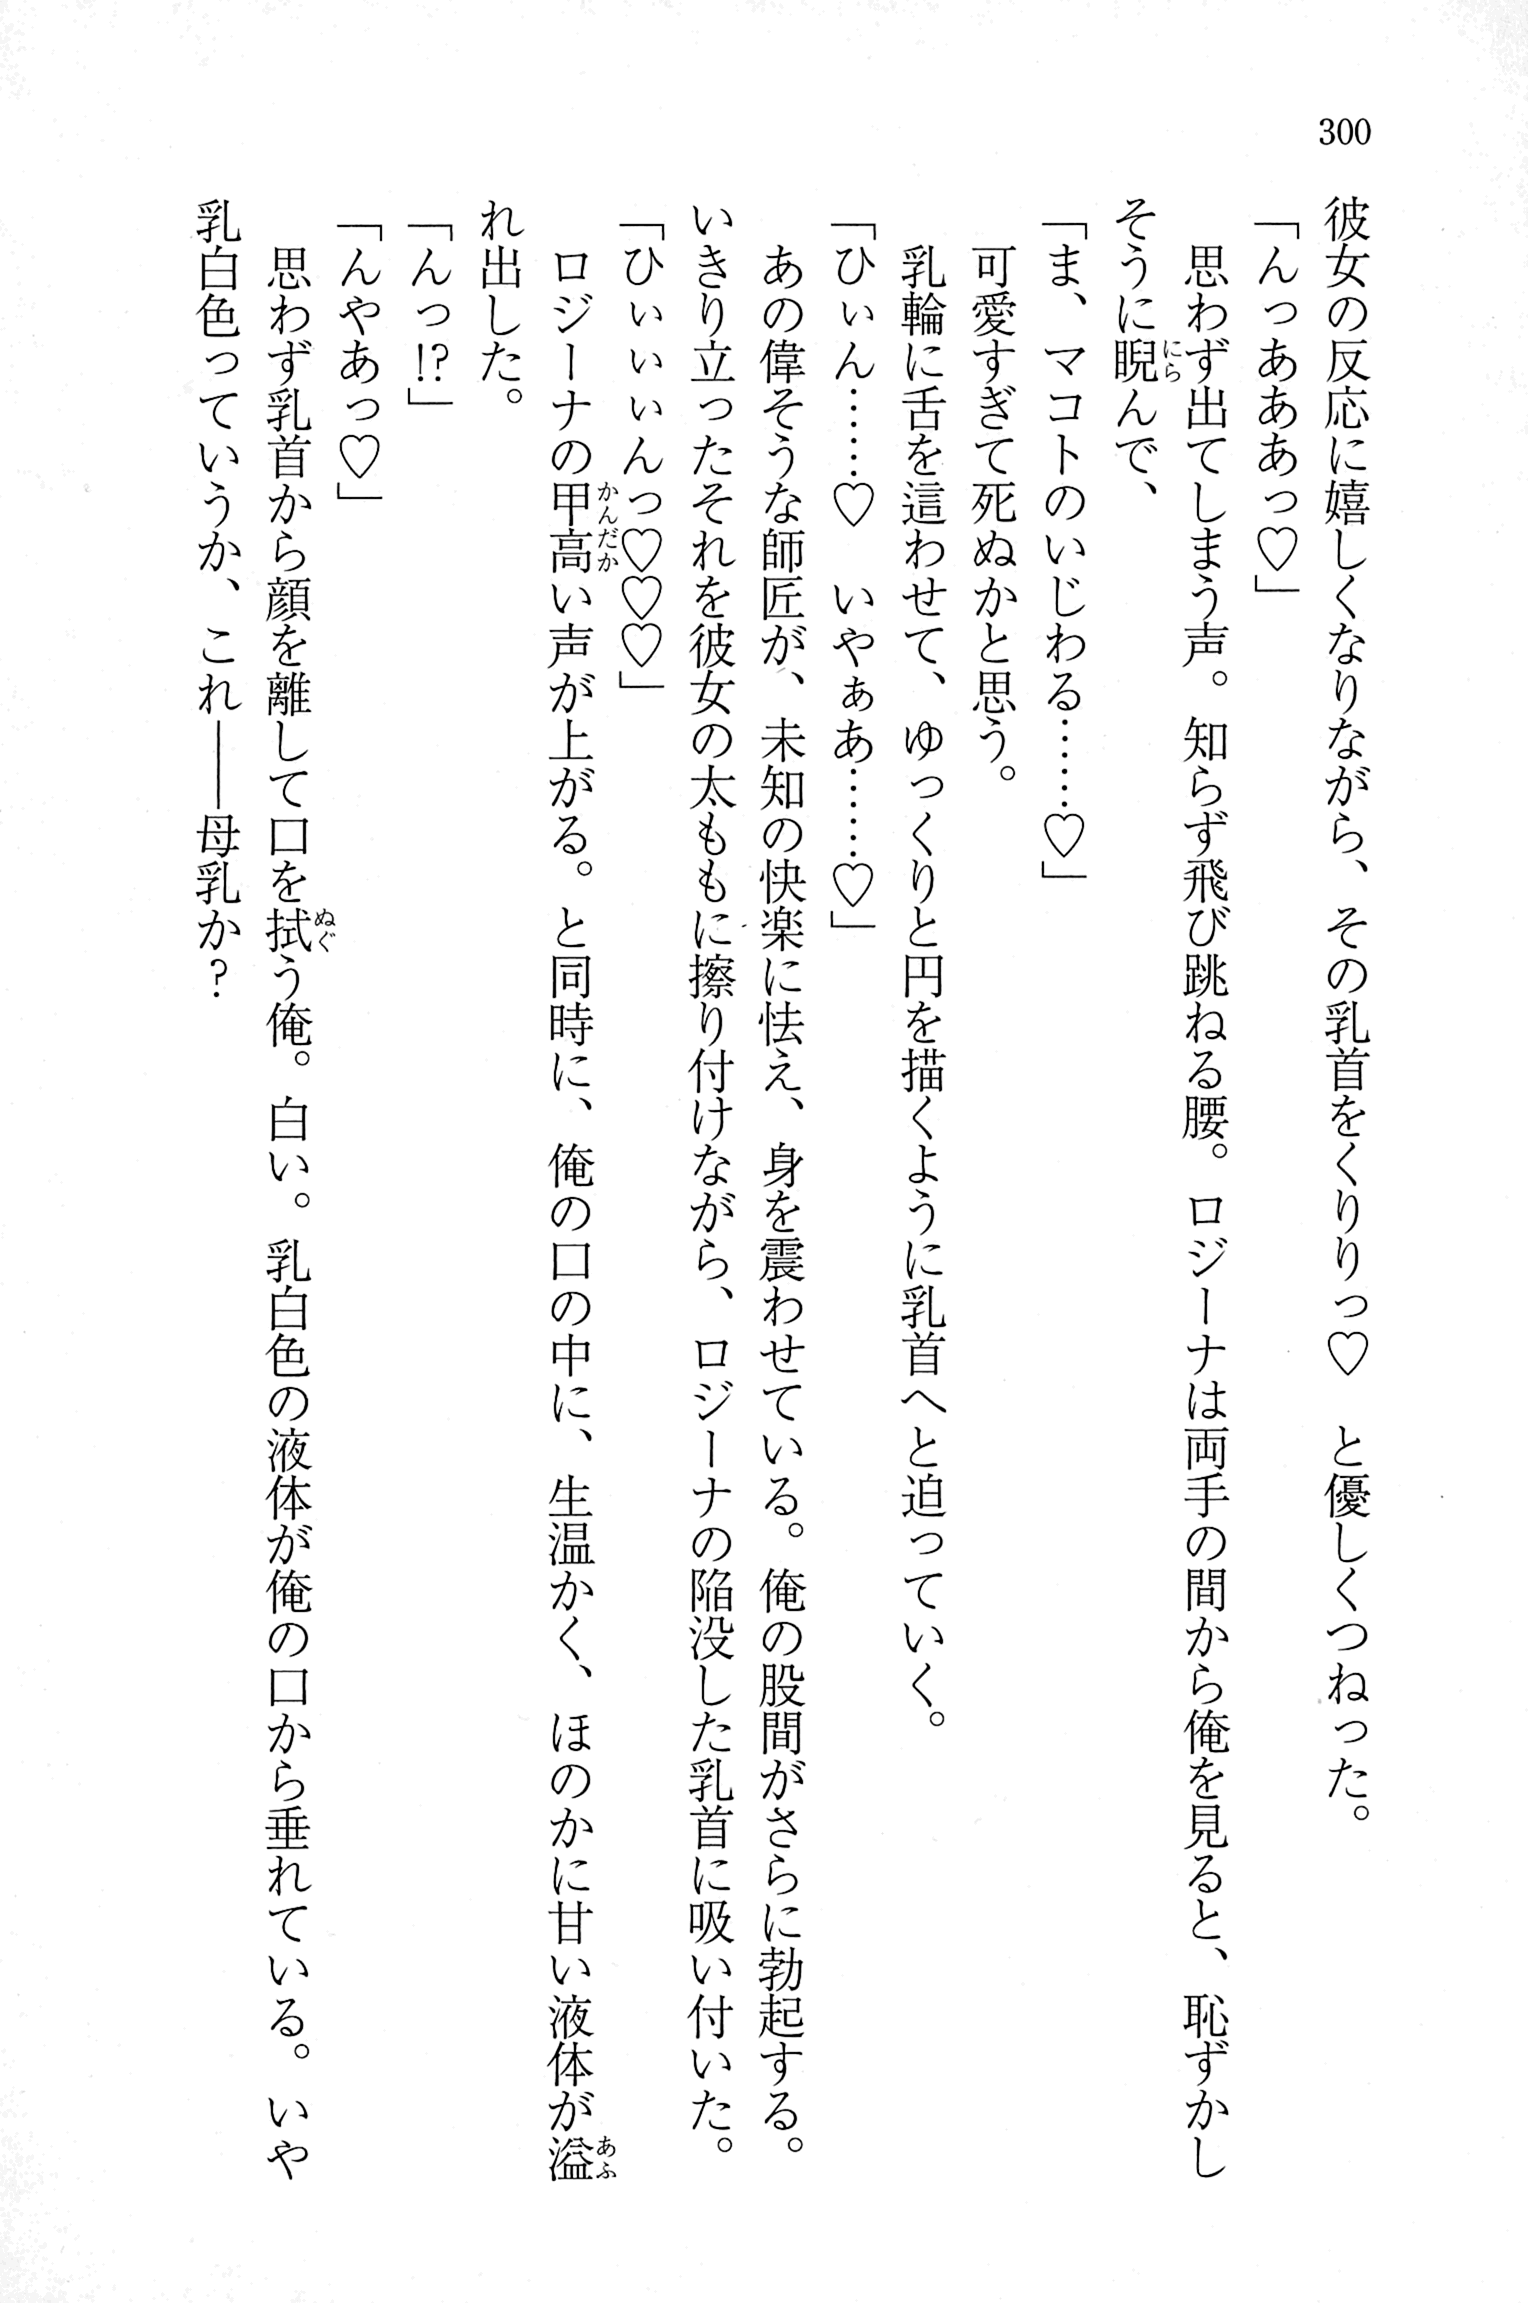 300
彼女の反応に嬉しくなりながら、その乳首をくりりっ♡　と優しくつねった。
「んっあああっ♡」
　思わず出てしまう声。知らず飛び跳ねる腰。ロジーナは両手の間から俺を見ると、恥ずかし
そうに睨んで、
「ま、マコトのいじわる……♡」
　可愛すぎて死ぬかと思う。
　乳輪に舌を這わせて、ゆっくりと円を描くように乳首へと迫っていく。
「ひぃん……♡　いやぁあ……♡」
　あの偉そうな師匠が、未知の快楽に怯え、身を震わせている。俺の股間がさらに勃起する。
いきり立ったそれを彼女の太ももに擦り付けながら、ロジーナの陥没した乳首に吸い付いた。
「ひぃぃぃんっ♡♡♡」
　ロジーナの甲高い声が上がる。と同時に、俺の口の中に、生温かく、ほのかに甘い液体が溢
れ出した。
「んっ!?」
「んやあっ♡」
　思わず乳首から顔を離して口を拭う俺。白い。乳白色の液体が俺の口から垂れている。いや
乳白色っていうか、これ――母乳か？
にら
かんだか
あふ
ぬぐ